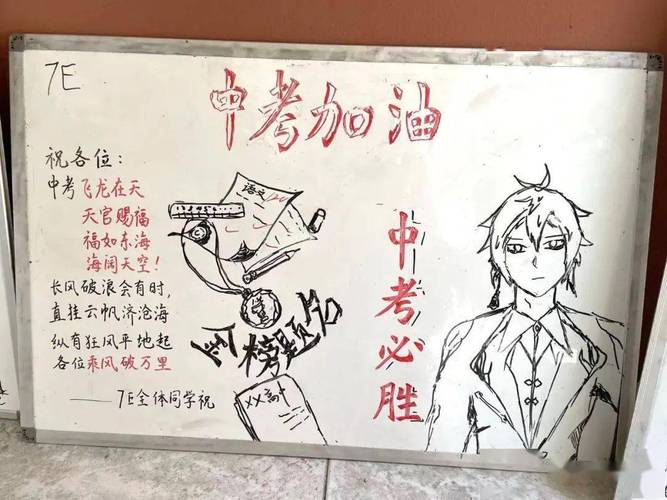 7E
中考加油
祝各位：
中考飞龙在天
天官赐福
福如东海
海阔天空！
长风破浪会有时，
直挂云帆济沧海
纵有狂风平地起
各位乘风破万里
——7E全体同学祝
语文
金榜题名
中考必胜